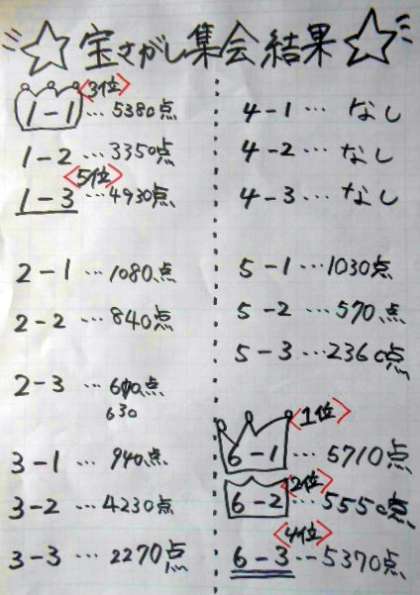 ☆宝さがし集会結果☆
〈3位〉
1-1…5380点
1-2…3350点
〈5位〉
1-3…4930点
2-1…1080点
2-2…840点
2-3…600点
630
3-1…940点
3-2…4230点
3-3…2270点
4-1…なし
4-2…なし
4-3…なし
5-1…1030点
5-2…570点
5-3…2360点
〈1位〉
6-1…5710点
〈2位〉
6-2…5550点
〈4位〉
6-3…5370点